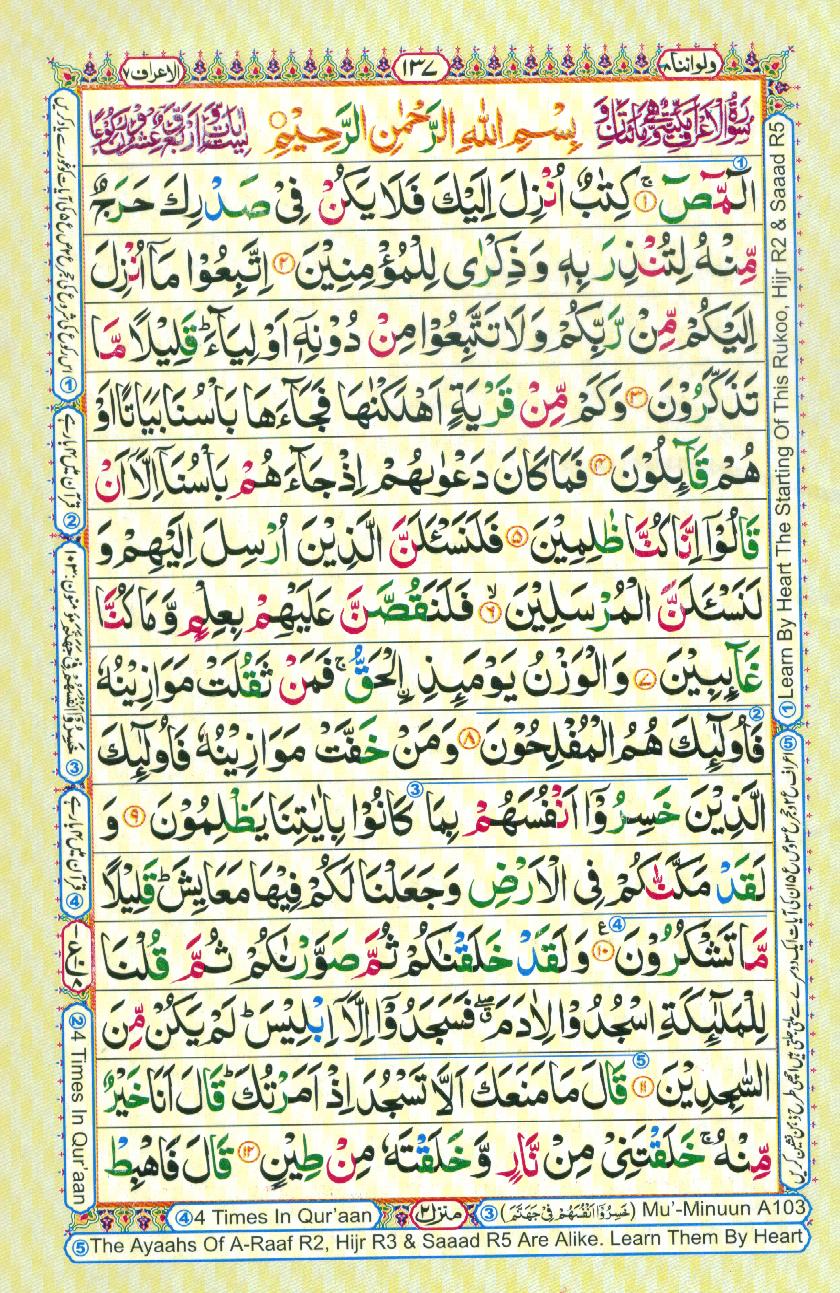 ولواننا ٨
١٣٧
الاعراف ٧
سُوْرَةُ الْاَعْرَافِ مَكِّيَّةٌ وَّهِيَ مِائَتَانِ وَّ
بِسْمِ اللهِ الرَّحْمٰنِ الرَّحِيْمِ
الٓمّٓصٓ ۚ﴿۱﴾ كِتٰبٌ اُنْزِلَ اِلَيْكَ فَلَا يَكُنْ فِيْ صَدْرِكَ حَرَجٌ
مِّنْهُ لِتُنْذِرَ بِهٖ وَ ذِكْرٰى لِلْمُؤْمِنِيْنَ ﴿۲﴾ اِتَّبِعُوْا مَاۤ اُنْزِلَ
اِلَيْكُمْ مِّنْ رَّبِّكُمْ وَ لَا تَتَّبِعُوْا مِنْ دُوْنِهٖۤ اَوْلِيَآءَ ؕ قَلِيْلًا مَّا
تَذَكَّرُوْنَ ﴿۳﴾ وَ كَمْ مِّنْ قَرْيَةٍ اَهْلَكْنٰهَا فَجَآءَهَا بَاْسُنَا بَيَاتًا اَوْ
هُمْ قَآئِلُوْنَ ﴿۴﴾ فَمَا كَانَ دَعْوٰىهُمْ اِذْ جَآءَهُمْ بَاْسُنَاۤ اِلَّاۤ اَنْ
قَالُوْۤا اِنَّا كُنَّا ظٰلِمِيْنَ ﴿۵﴾ فَلَنَسْـَٔلَنَّ الَّذِيْنَ اُرْسِلَ اِلَيْهِمْ وَ
لَنَسْـَٔلَنَّ الْمُرْسَلِيْنَ ۙ﴿۶﴾ فَلَنَقُصَّنَّ عَلَيْهِمْ بِعِلْمٍ وَّ مَا كُنَّا
غَآئِبِيْنَ ﴿۷﴾ وَ الْوَزْنُ يَوْمَئِذِ ِ۟الْحَقُّ ۚ فَمَنْ ثَقُلَتْ مَوَازِيْنُهٗ
فَاُولٰٓئِكَ هُمُ الْمُفْلِحُوْنَ ﴿۸﴾ وَ مَنْ خَفَّتْ مَوَازِيْنُهٗ فَاُولٰٓئِكَ
الَّذِيْنَ خَسِرُوْۤا اَنْفُسَهُمْ بِمَا كَانُوْا بِاٰيٰتِنَا يَظْلِمُوْنَ ﴿۹﴾ وَ
لَقَدْ مَكَّنّٰكُمْ فِي الْاَرْضِ وَ جَعَلْنَا لَكُمْ فِيْهَا مَعَايِشَ ؕ قَلِيْلًا
مَّا تَشْكُرُوْنَ ﴿۱۰﴾ وَ لَقَدْ خَلَقْنٰكُمْ ثُمَّ صَوَّرْنٰكُمْ ثُمَّ قُلْنَا
لِلْمَلٰٓئِكَةِ اسْجُدُوْا لِاٰدَمَ ۖ فَسَجَدُوْۤا اِلَّاۤ اِبْلِيْسَ ؕ لَمْ يَكُنْ مِّنَ
السّٰجِدِيْنَ ﴿۱۱﴾ قَالَ مَا مَنَعَكَ اَلَّا تَسْجُدَ اِذْ اَمَرْتُكَ ؕ قَالَ اَنَا خَيْرٌ
مِّنْهُ ۚ خَلَقْتَنِيْ مِنْ نَّارٍ وَّ خَلَقْتَهٗ مِنْ طِيْنٍ ﴿۱۲﴾ قَالَ فَاهْبِطْ
① Learn By Heart The Starting Of This Rukoo, Hijr R2 & Saaad R5
② قرآن میں ۴ بار ہے
④ قرآن میں ۴ بار ہے
② 4 Times In Qur'aan
④ 4 Times In Qur'aan
منزل ٢
③ (خَسِرُوْۤا اَنْفُسَهُمْ فِيْ جَهَنَّمَ) Mu'-Minuun A103
⑤ The Ayaahs Of A-Raaf R2, Hijr R3 & Saaad R5 Are Alike. Learn Them By Heart